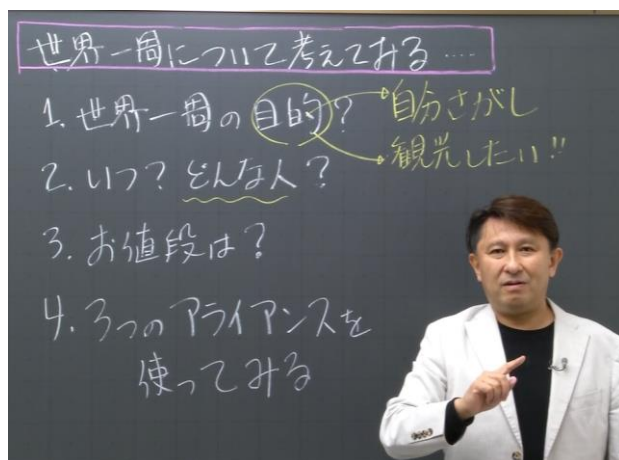 世界一周について考えてみる……
1. 世界一周の目的? 自分さがし
観光したい!!
2. いつ? どんな人?
3. お値段は?
4. 3つのアライアンスを
使ってみる